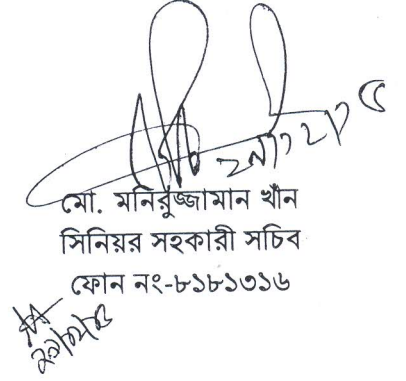 মো. মনিরুজ্জামান খাঁন
সিনিয়র সহকারী সচিব
ফোন নং-৮১৮১৩১৬